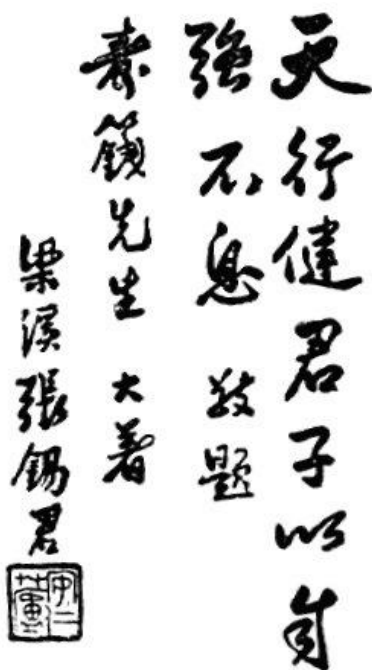 天行健君子以自
強不息 敬題
壽籛先生 大著
梁溪張錫君